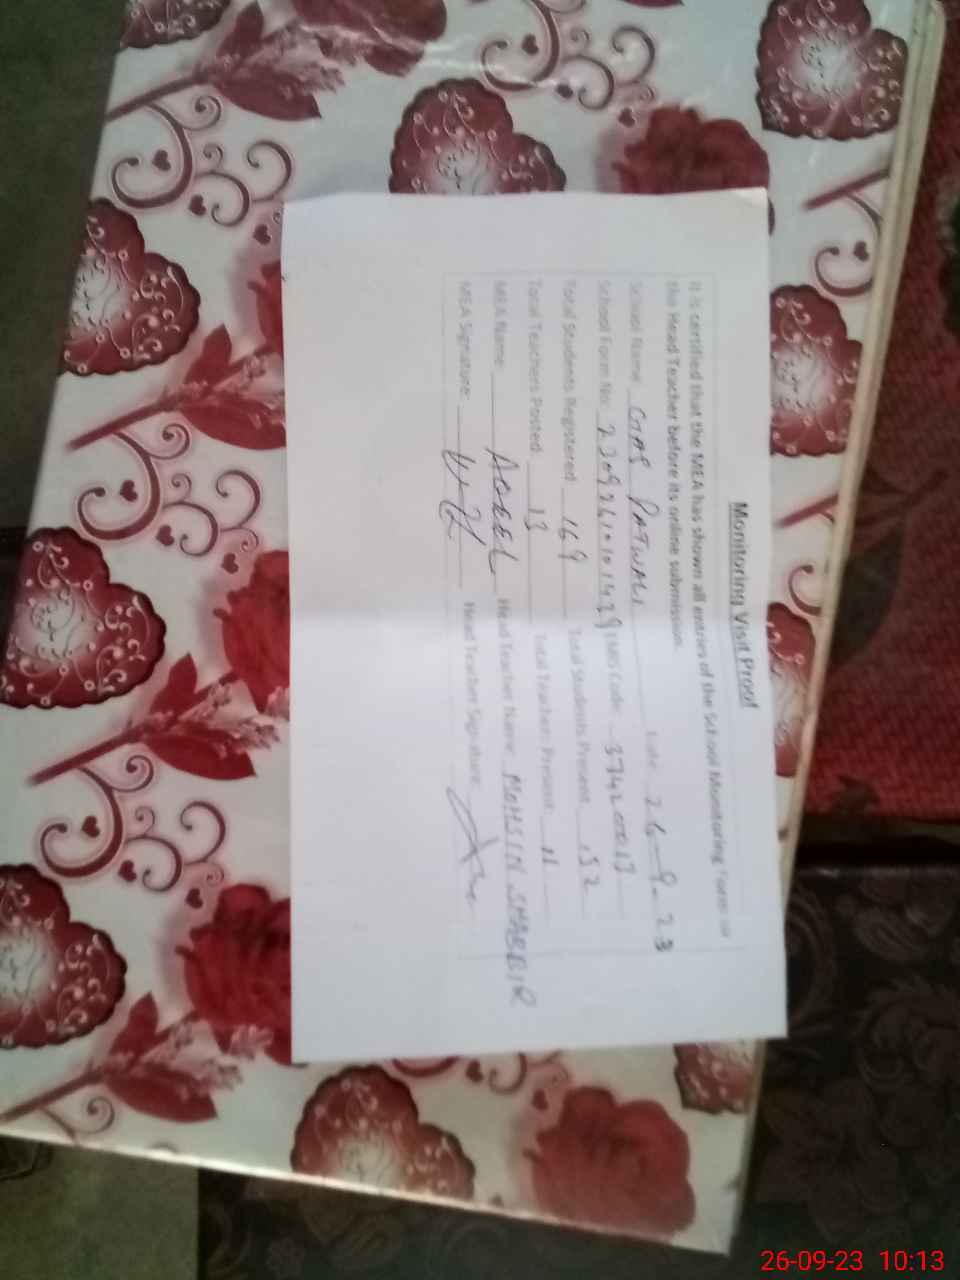 Monitoring Visit Proof
It is certified that the MEA has shown all entries of the School Monitoring Form to
the Head Teacher before its online submission.
School Name: PATWALI Date: 26-9-23
School Form No: EMIS Code:
Total Students Registered 169 Total Students Present 152
Total Teachers Posted 13 Total Teachers Present 11
MEA Name: Head Teacher Name: MOHSIN SHABBIR
MEA Signature: Head Teacher Signature:
26-09-23 10:13